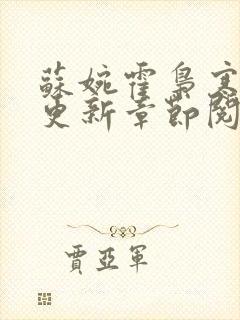 蘇婉霍梟寒
更新章節閱
賈亞軍